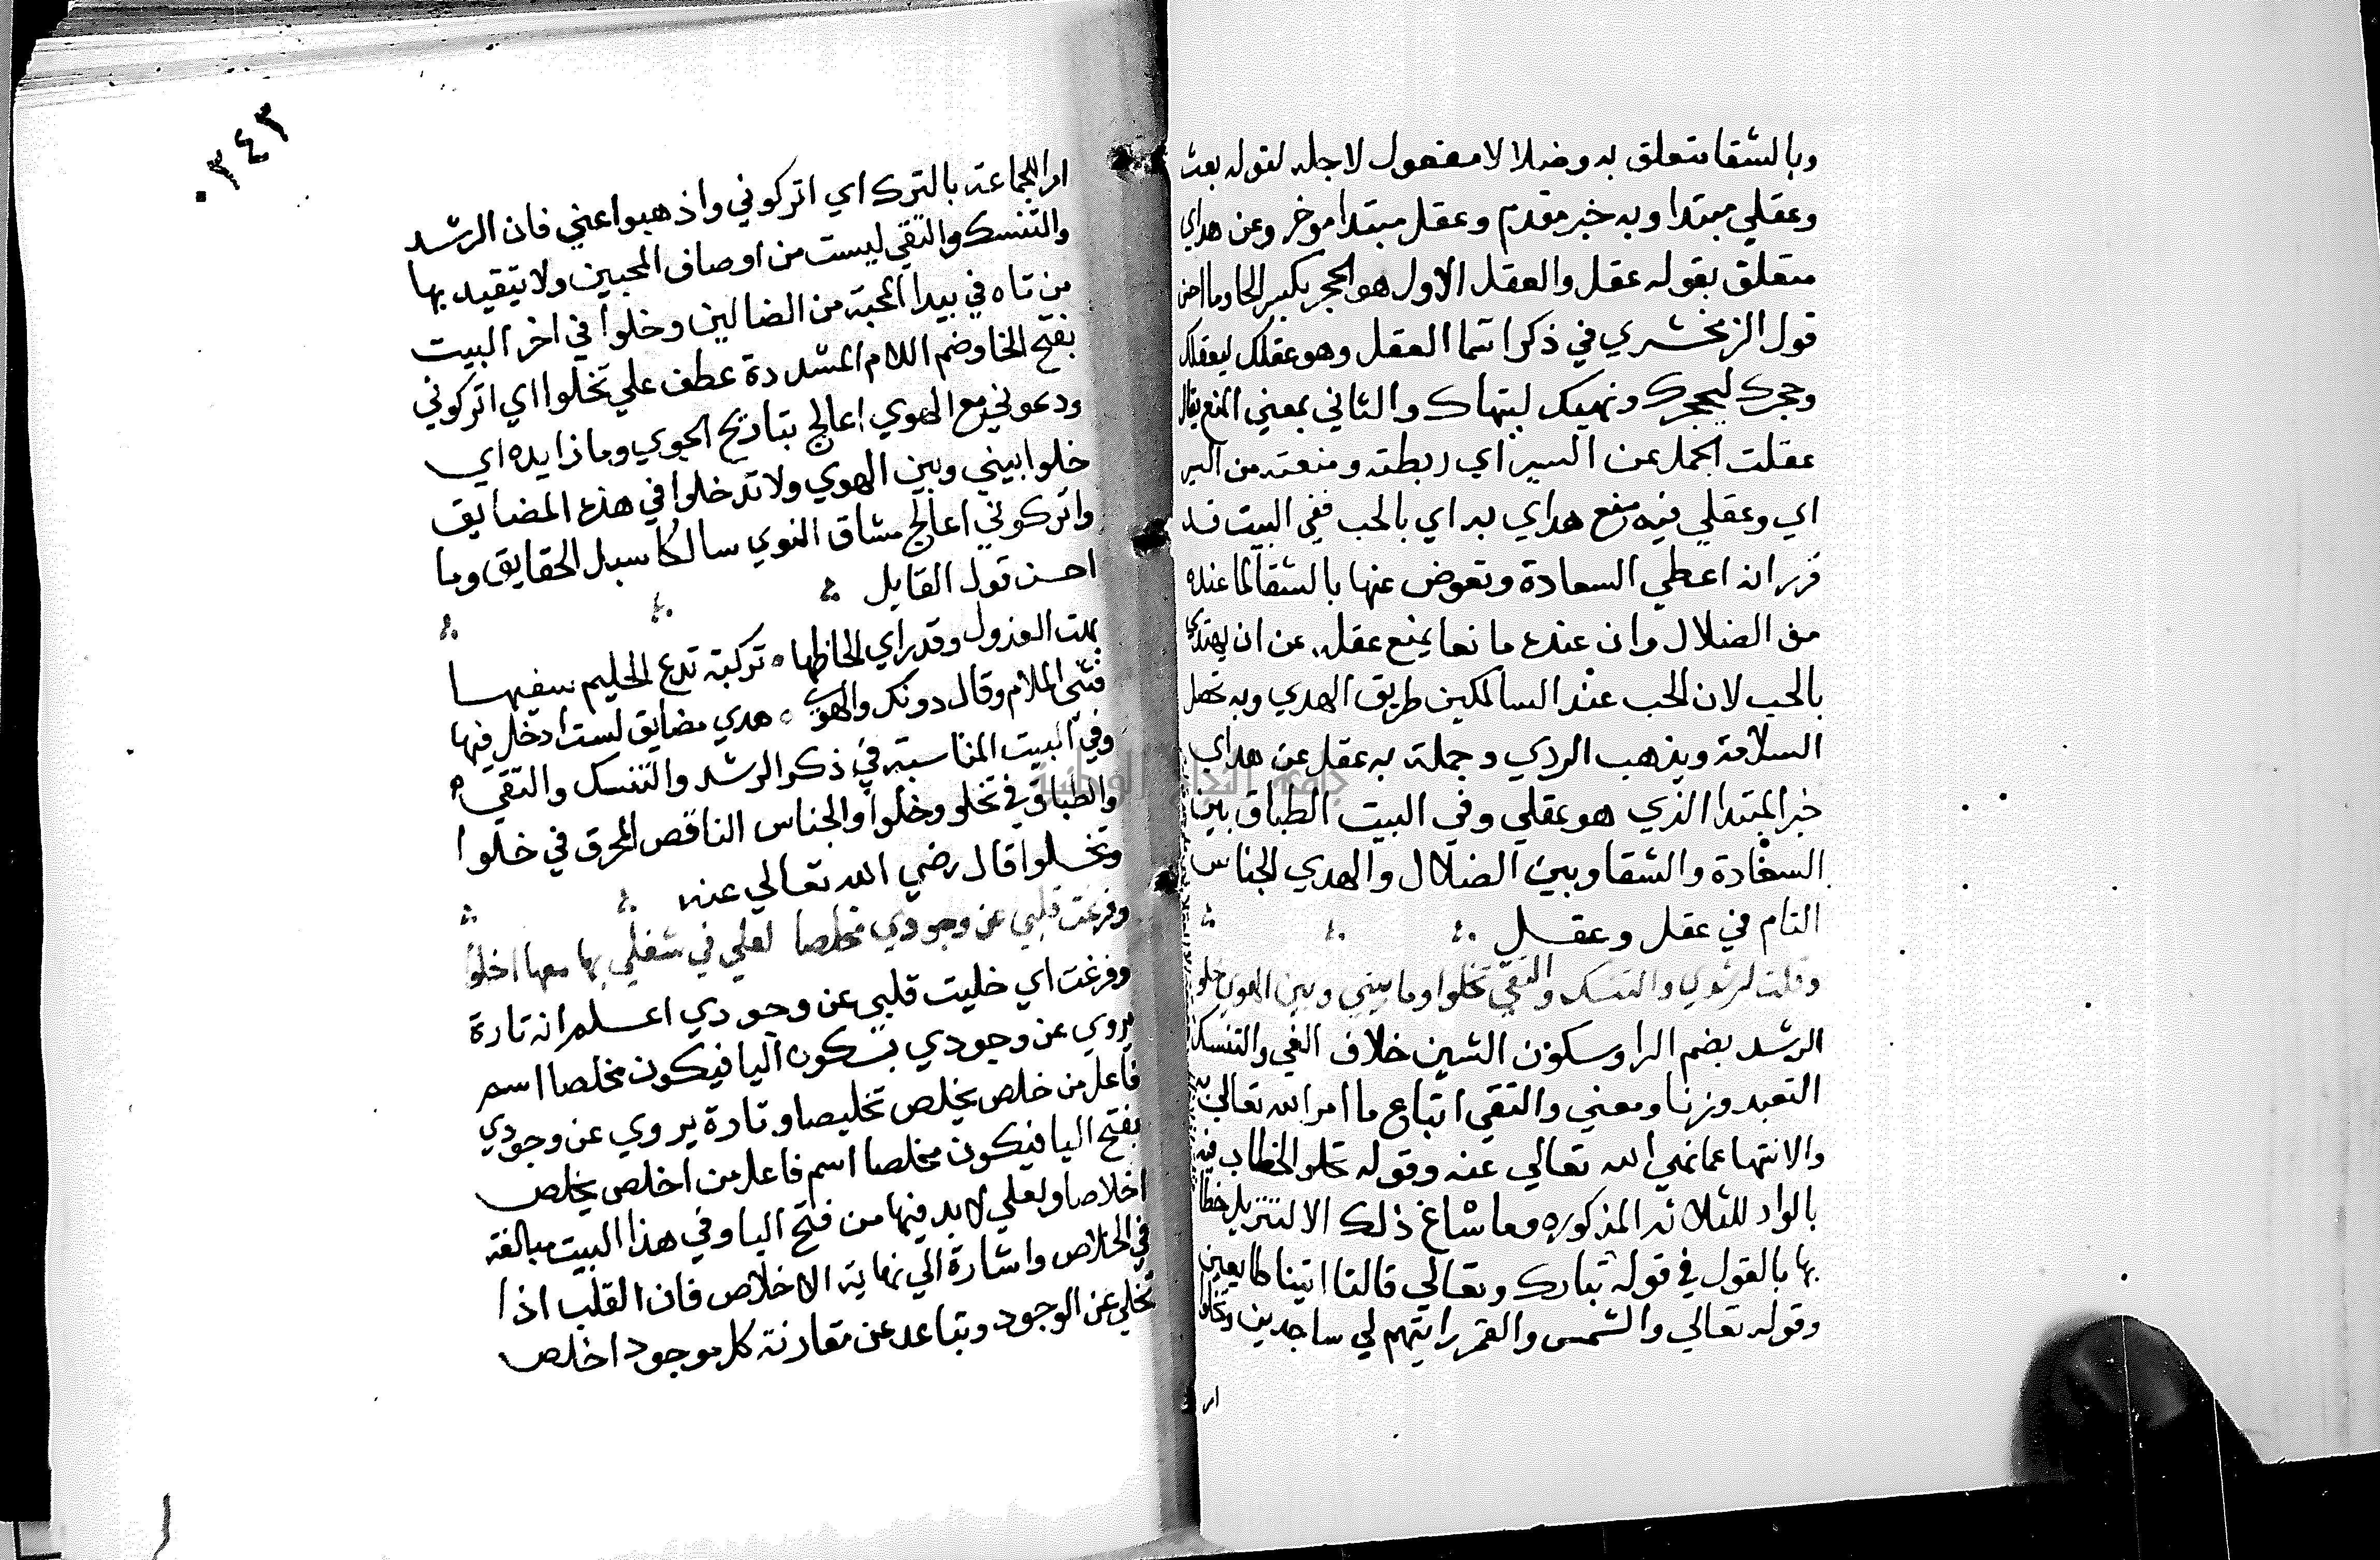 وبالشقا متعلق به وضلالا مفعول لاجله لقوله بعت
وعقلي مبتدا وبه خبر مقدم وعقل مبتدا موخر وعن هداي
متعلق بقوله عقل والعقل الاول هو الحجر بكسر الحا وما احسن
قول الزمخشري في ذكر اسما العقل وهو عقلك ليعقلك
وحجرك ليحجرك ونهيك لينهاك والثاني بمعني المنع يقال
عقلت الجمل عن السير اي ربطته ومنعته من السير
اي وعقلي فيه منع هداي به اي بالحب ففي البيت قد
قرر انه اعطي السعادة وتعوض عنها بالشقا لما عنده
من الضلال وان عنده مانعا يمنع عقله عن ان يهتدي
بالحب لان الحب عند السالكين طريق الهدي وبه تحصل
السلامة ويذهب الردي وجملة به عقل عن هداي
خبر المبتدا الذي هو عقلي وفي البيت الطباق بين
السعادة والشقا وبين الضلال والهدي الجناس
التام في عقل وعقل
وقلت لرشدي والتنسك والتقي تخلوا وما بيني وبين الهوي خلو
الرشد بضم الرا وسكون الشين خلاف الغي والتنسك
التعبد وزنا ومعني والتقي اتباع ما امر الله تعالي
والانتها عما نهي الله تعالي عنه وقوله تخلوا الخطاب فيه
بالواو للثلاثه المذكوره وما شاغ ذلك الا لتنزيل خطا
بها بالقول في قوله تبارك وتعالي قالتا اتينا طايعين
وقوله تعالي والشمس والقمر رايتهم لي ساجدين وتخلوا
امر
٣٤٣
امر للجماعة بالترك اي اتركوني واذهبوا عني فان الرشد
والتنسك والتقي ليست من اوصاف المحبين ولا يتقيد بها
من تاه في بيدا المحبة من الضالين وخلوا في اخر البيت
بفتح الخا وضم اللام المشددة عطف علي تخلوا اي اتركوني
ودعوني مع الهوي اعالج تباريح الجوي وما زايده اي
خلوا بيني وبين الهوي ولا تدخلوا في هذه المضايق
واتركوني اعالج مشاق النوي سالكا سبل الحقايق وما
احسن قول القايل
بهت العذول وقد راي الحاظها تركية تدع الحليم سفيها
فثني الملام وقال دونك والهوي هدي مضايق لست ادخل فيها
وفي البيت المناسبة في ذكر الرشد والتنسك والتقي
والطباق في تخلو وخلوا والجناس الناقص المحرف في خلوا
وتخلوا قال رضي الله تعالي عنه
وفرغت قلبي عن وجودي مخلصا لعلي في شغلي بها معها اخلو
وفرغت اي خليت قلبي عن وجودي اعلم انه تارة
يروي عن وجودي بسكون اليا فيكون مخلصا اسم
فاعل من خلص يخلص تخليصا وتارة يروي عن وجودي
بفتح اليا فيكون مخلصا اسم فاعل من اخلص يخلص
اخلاصا ولعلي لا بد فيها من فتح اليا وفي هذا البيت مبالغة
في الخلاص واشارة الي نهاية الاخلاص فان القلب اذا
تخلي عن الوجود وتباعد عن مقارنة كل موجود اخلص
جامعة النجاح الوطنية